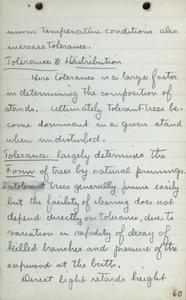 mum temperature conditions also
increase tolerance.
Tolerance & Distribution
Here tolerance is a large factor
in determining the composition of
stands. Ultimately tolerant trees be-
come dominant in a given stand
when undisturbed.
Tolerance largely determines the
form of trees by natural prunings.
Intolerant trees generally prune early
but the facility of clearing does not
depend directly on tolerance, due to
variation in rapidity of decay of
killed branches and pressure of the
sapwood at the butts.
Direct light retards height
60